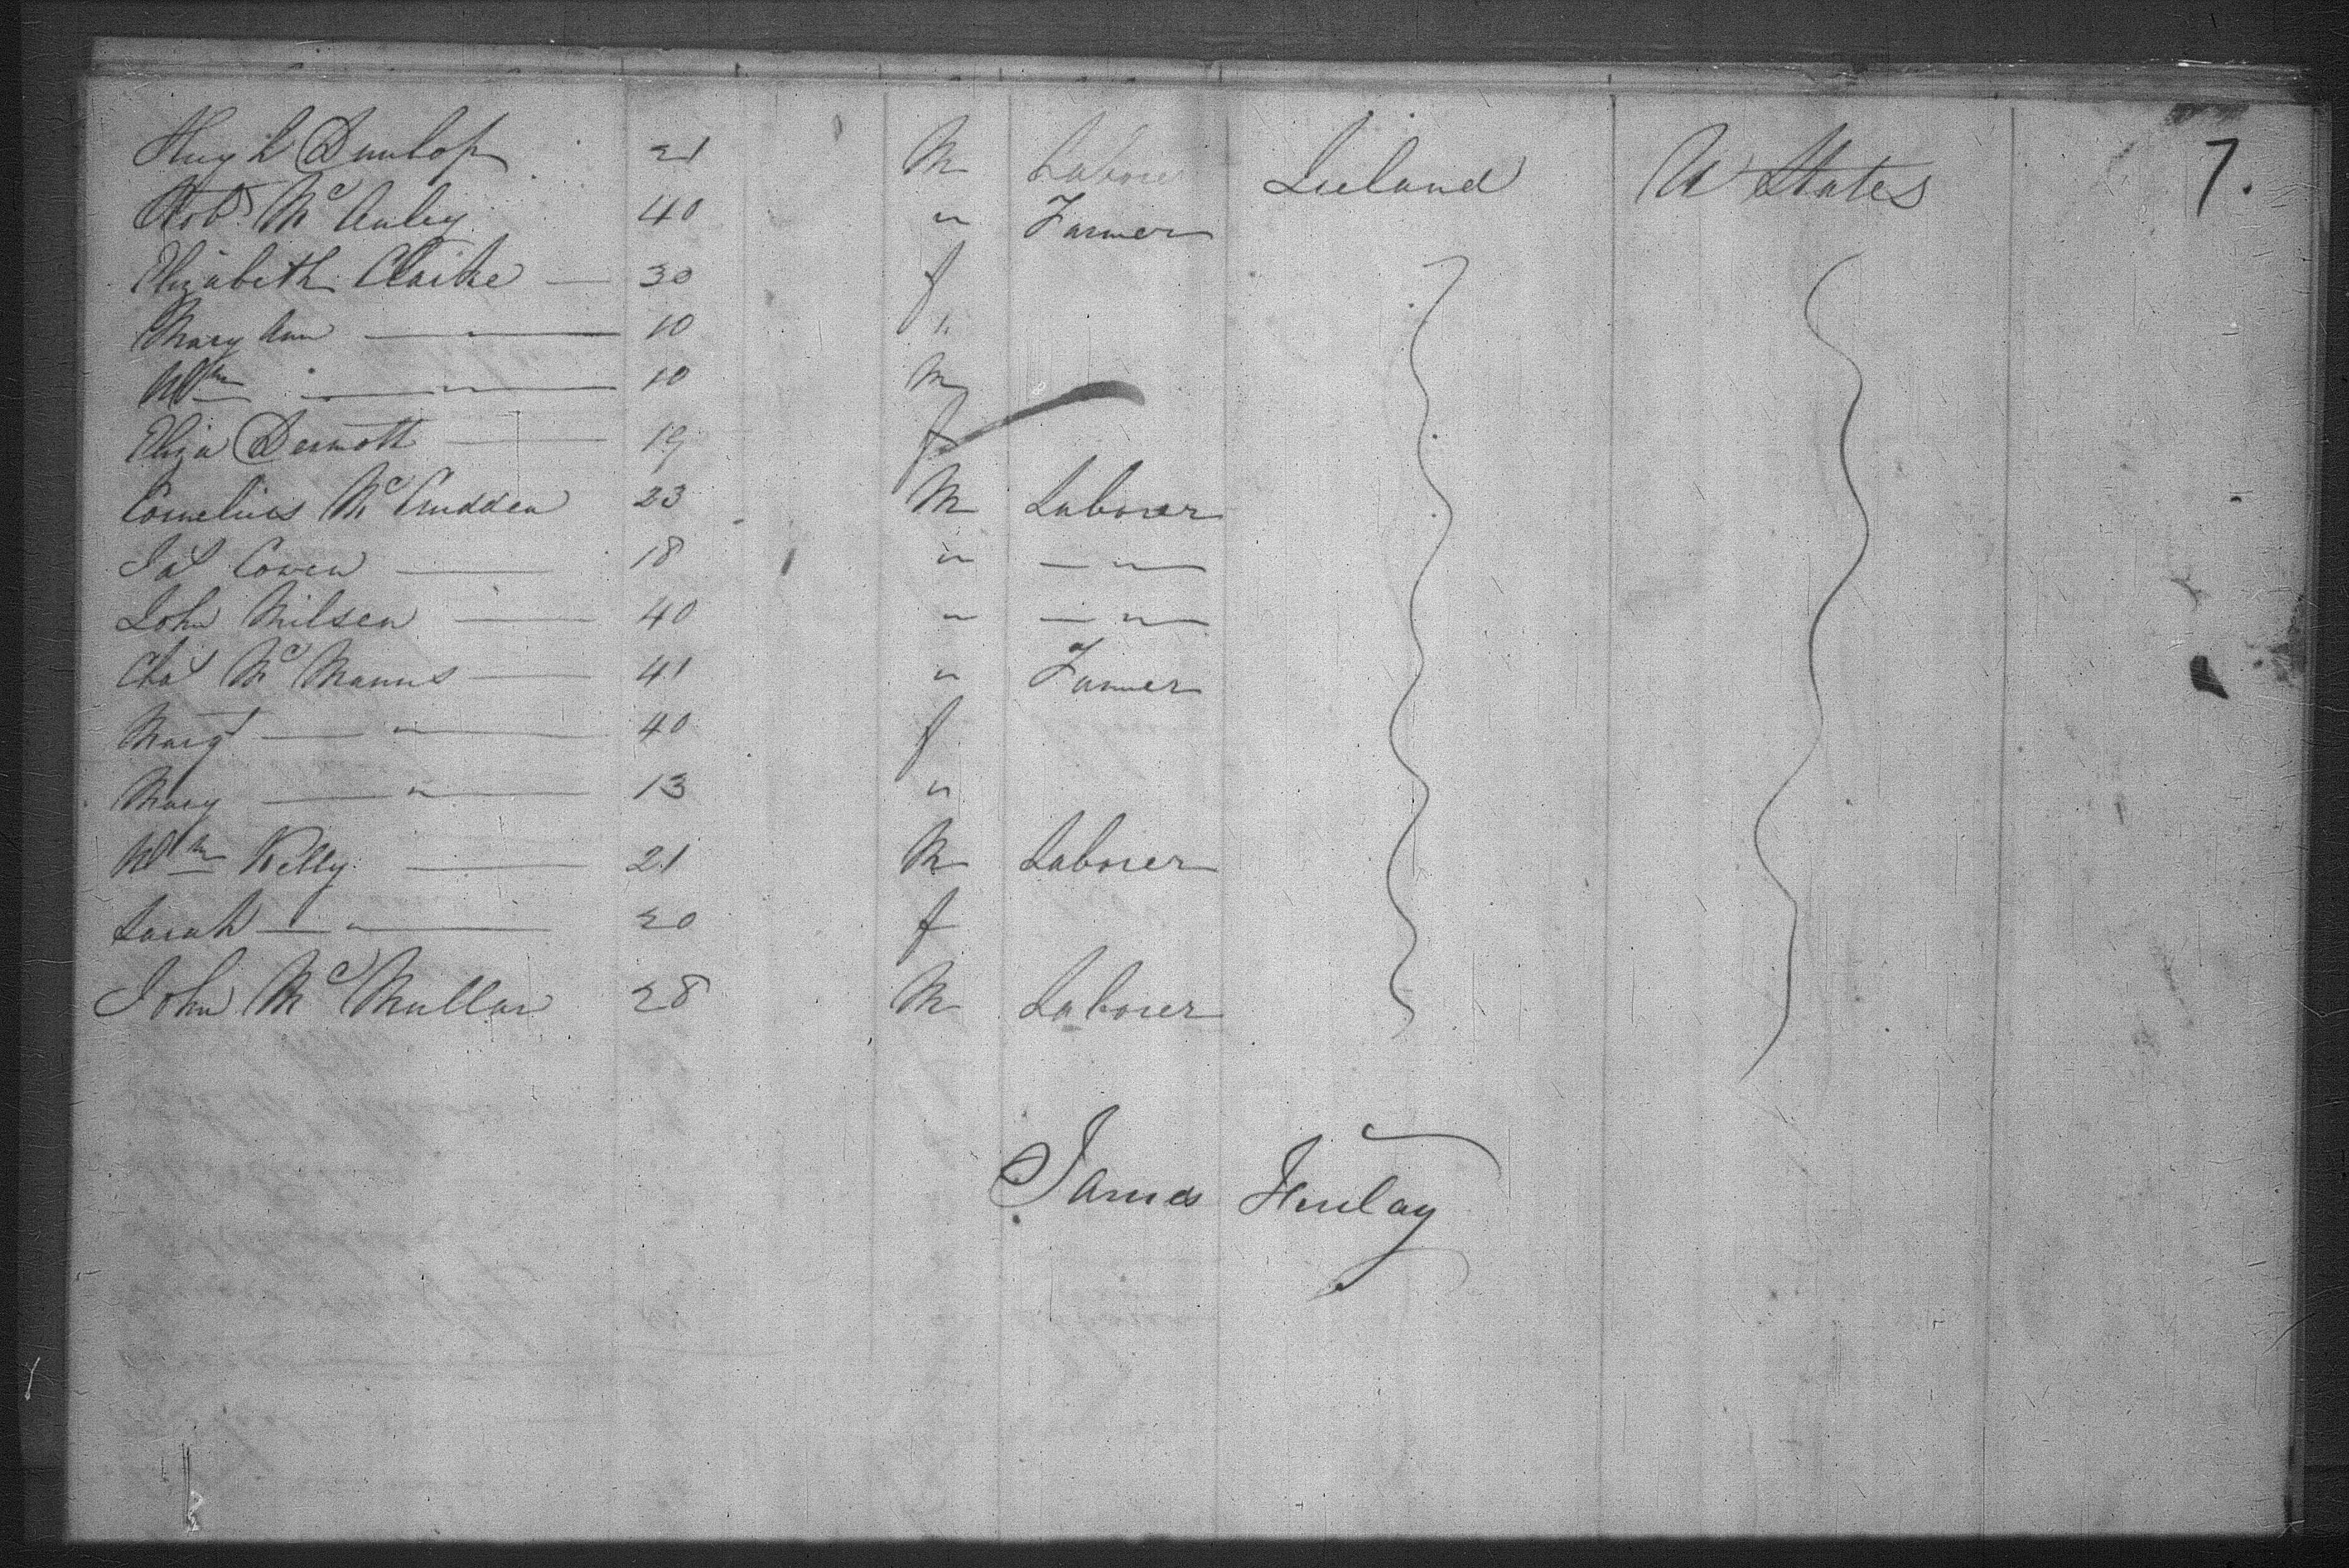 Hugh Dunlop 21 M Laborer Ireland U States 7.
Robt Mc Auley 40 " Farmer
Elizabeth Clarke — 30 f
Mary Ann — " — 10 "
Wm — " — 10 M
Eliza Dermott — 19 f
Cornelius Mc Cudden 23 M Laborer
Pat Cowen — 18 " — " —
John Wilsen — 40 " — " —
Chas Mc Manus — 41 " Farmer
Margt — " — 40 f
Mary — " — 13 "
Wm Kelly — 21 M Laborer
Sarah — " — 20 f
John Mc Mullan 28 M Laborer
James Finlay